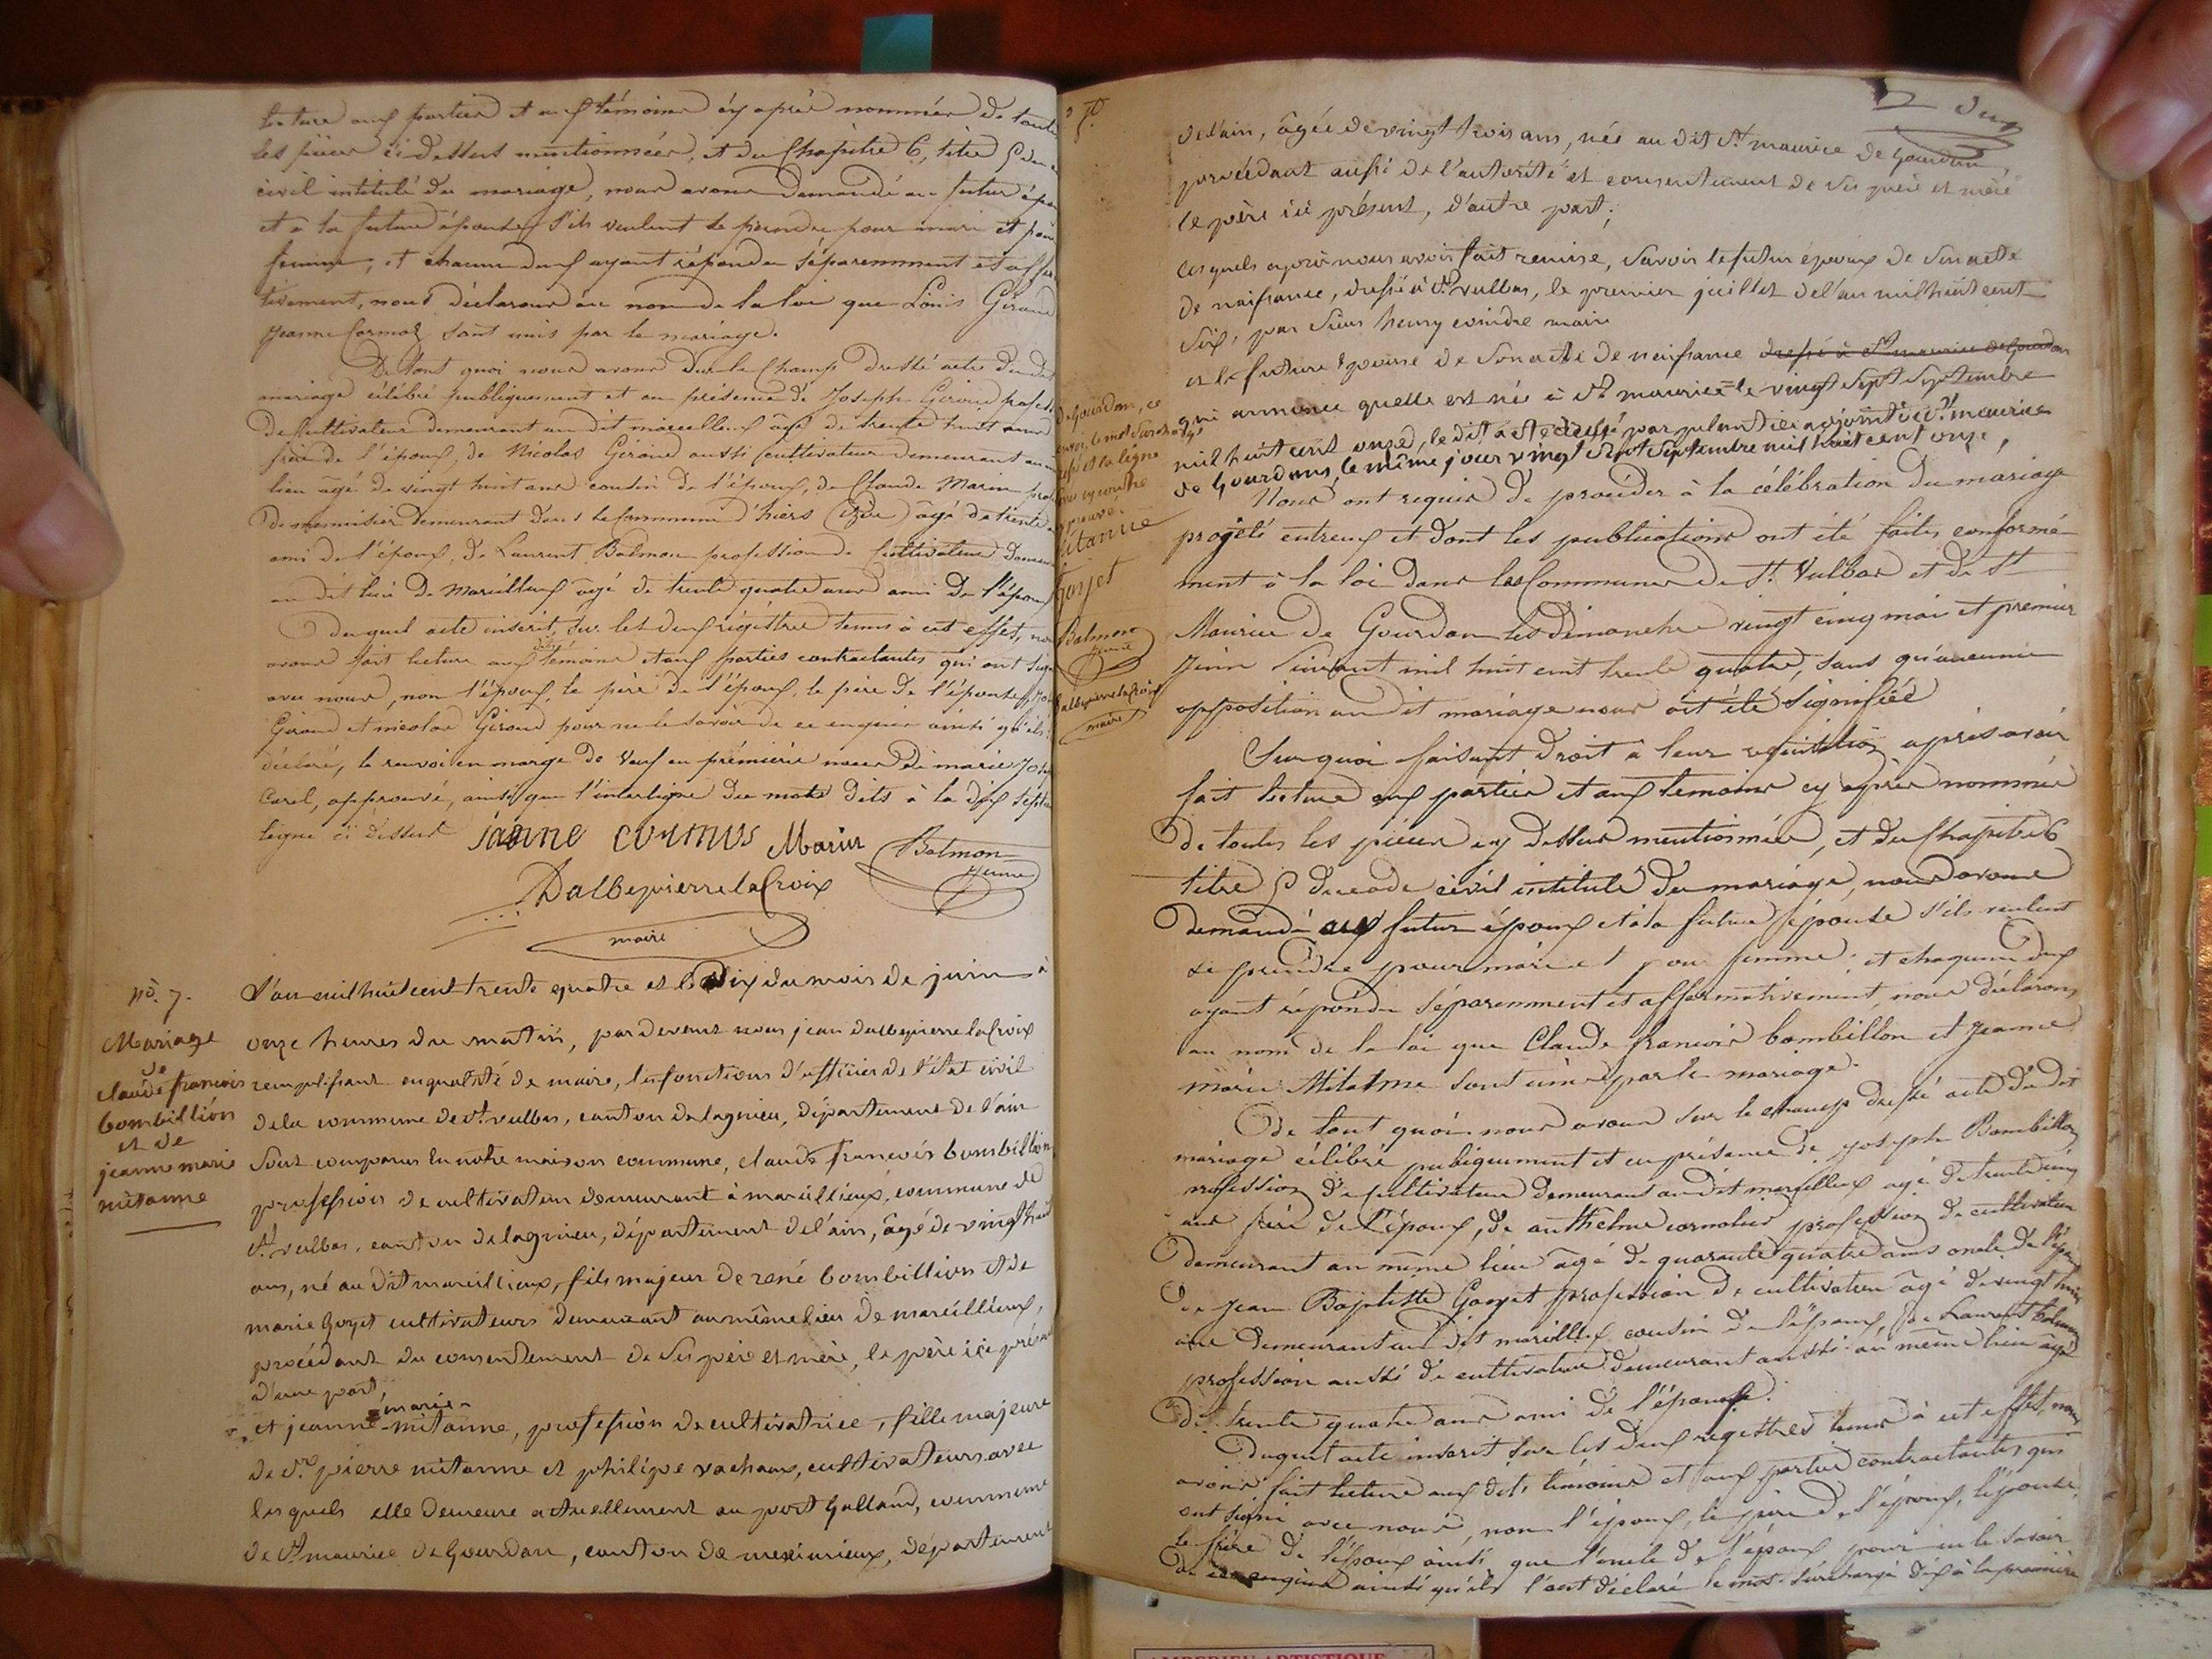 lecture aux parties et aux témoins cy après nommés de toutes
les pièces ci dessus mentionnées, et du Chapitre 6, titre 5 du
civil intitulé du mariage, nous avons demandé au futur épou
et a la future épouse s'ils veulent se prendre pour mari et pour
femme, et chacun deux ayant répondu séparemment et affir
tivement, nous déclarons au nom de la loi que Louis Giroud
Jeanne Cormoz sont unis par le mariage.
De tout quoi nous avons sur le champ dressé acte du dit
mariage célébré publiquement et en présence de Joseph Giroud profess
de cultivateur demeurant au dit marcilleux âgé de trente huit ans
frère de l'époux, de Nicolas Giroud aussi cultivateur demeurant au
lieu âgé de vingt huit ans cousin de l'époux, de Claude Marin pro
de menuisier demeurant dans la commune d'hiers (izère) âgé de trente
ami de l'époux, de Laurent Balmon profession de cultivateur demeu
au dit lieu de Marcilleux âgé de trente quatre ans ami de l'époux
Duquel acte inscrit sur les deux régistres tenus à cet effet, nous
avons fait lecture aux dits témoins et aux parties contractantes qui ont signé
avec nous, non l'époux, le père de l'époux, le père de l'épouse, Jos
Giroud et nicolas Giroud pour ne le savoir de ce enquis ainsi qu'ils
déclaré, le renvoi en marge de veuf en prémière noces de marie Jos
Carel, approuvé, ainsi que l'interligne du mots dits à la dix septi
ligne ci dessus
jeanne cormos Marin Balmon
jeune
Dalbepierrelacroix
maire
nº. 7.
Mariage
de
claude francois
bombillion
et de
jeanne marie
mitanne
L'an mil huit cent trente quatre et le dix du mois de juin à
onze heures du matin, par devant nous jean dalbepierre lacroix
remplissant en qualité de maire, les fonctions d'officier de l'état civil
de la commune de st. vulbas, canton de lagnieu, département de l'ain
sont comparus en notre maison commune, claude francois bombillion
profession de cultivateur demeurant à marcillieux, commune de
st. vulbas, canton de lagnieu, département de l'ain, âgé de vingt huit
ans, né au dit marcillieux, fils majeur de rené bombillion et de
marie goyet cultivateurs demeurant au même lieu de marcillieux,
procédant du consendement de ses père et mère, le père ici présent
d'une part,
et jeanne marie mitanne, profession de cultivatrice, fille majeure
de sr. pierre mitanne et philipe vachaux, cultivateurs avec
lesquels elle demeure actuellement au port galland, commune
de st. maurice de gourdan, canton de meximieux, département
de l'ain, âgée de vingt trois ans, née au dit st. maurice de gourdan
procédant aussi de l'autorité et consentement de ses père et mère
le père ici présent, d'autre part;
lesquels après nous avoir fait remise, savoir le futur époux de son acte
de naissance, dressé à st. vulbas, le premier juillet de l'an mil huit cent
six, par sieur henry coindre maire
et la future épouse de son acte de naissance dressé à st. maurice de gourdan
qui annonce quelle est née à st. maurice le vingt sept septembre
mil huit cent onze, le dit acte dressé par adjoint à st. maurice
de gourdans, le même jour vingt sept septembre mil huit cent onze,
Nous ont requis de procéder à la célébration du mariage
projeté entreux et dont les publications ont été faites conformé-
ment à la loi dans les Communes de St. Vulbas et de St
Maurice de Gourdan les dimanche vingt cinq mai et premier
Juin suivant mil huit cent trente quatre, sans qu'aucune
opposition au dit mariage nous ait été signifiée
Sur quoi faisant droit à leur requisition après avoir
fait lecture aux parties et aux témoins cy après nommés
de toutes les pièces cy dessus mentionnées, et du Chapitre 6
titre 5 du code civil intitulé du mariage, nous avons
demandé aux futur époux et à la future épouse s'ils veulent
se prendre pour mari et pour femme; et chaqu'un deux
ayant répondu séparemment et affermativement, nous déclarons
au nom de la loi que Claude francois bombillon et Jeanne
marie Mitanne sont unis par le mariage.
De tout quoi nous avons sur le champ dressé acte du dit
mariage célébré publiquement et en présence de joseph Bombillon
profession de cultivateur demeurant au dit marcilleux âgé de trente cinq
ans frère de l'époux, de anthelme cormoz profession de cultivateur
demeurant au même lieu âgé de quarante quatre ans oncle de l'époux
de jean Baptiste Goyet profession de cultivateur âgé de vingt huit
ans demeurant au dit marcilleux cousin de l'époux, de Laurent balmon
profession aussi de cultivateur demeurant aussi au même lieu âgé
de trente quatre ans ami de l'époux.
Duquel acte inscrit sur les deux régistres tenus à cet effet, nous
avons fait lecture aux dits témoins et aux parties contractantes qui
ont signé avec nous, non l'époux, le père de l'époux, l'épouse,
le frère de l'époux ainsi que l'oncle de l'époux pour ne le savoir
de ce enquis ainsi qu'ils l'ont déclaré le mot surchargé dix à la première
de gourdan, ce
renvoi, le mot surchargé
et la ligne
approuvé.
Mitanne
Goyet
Balmon
jeune
dalbepierrelacroix
maire